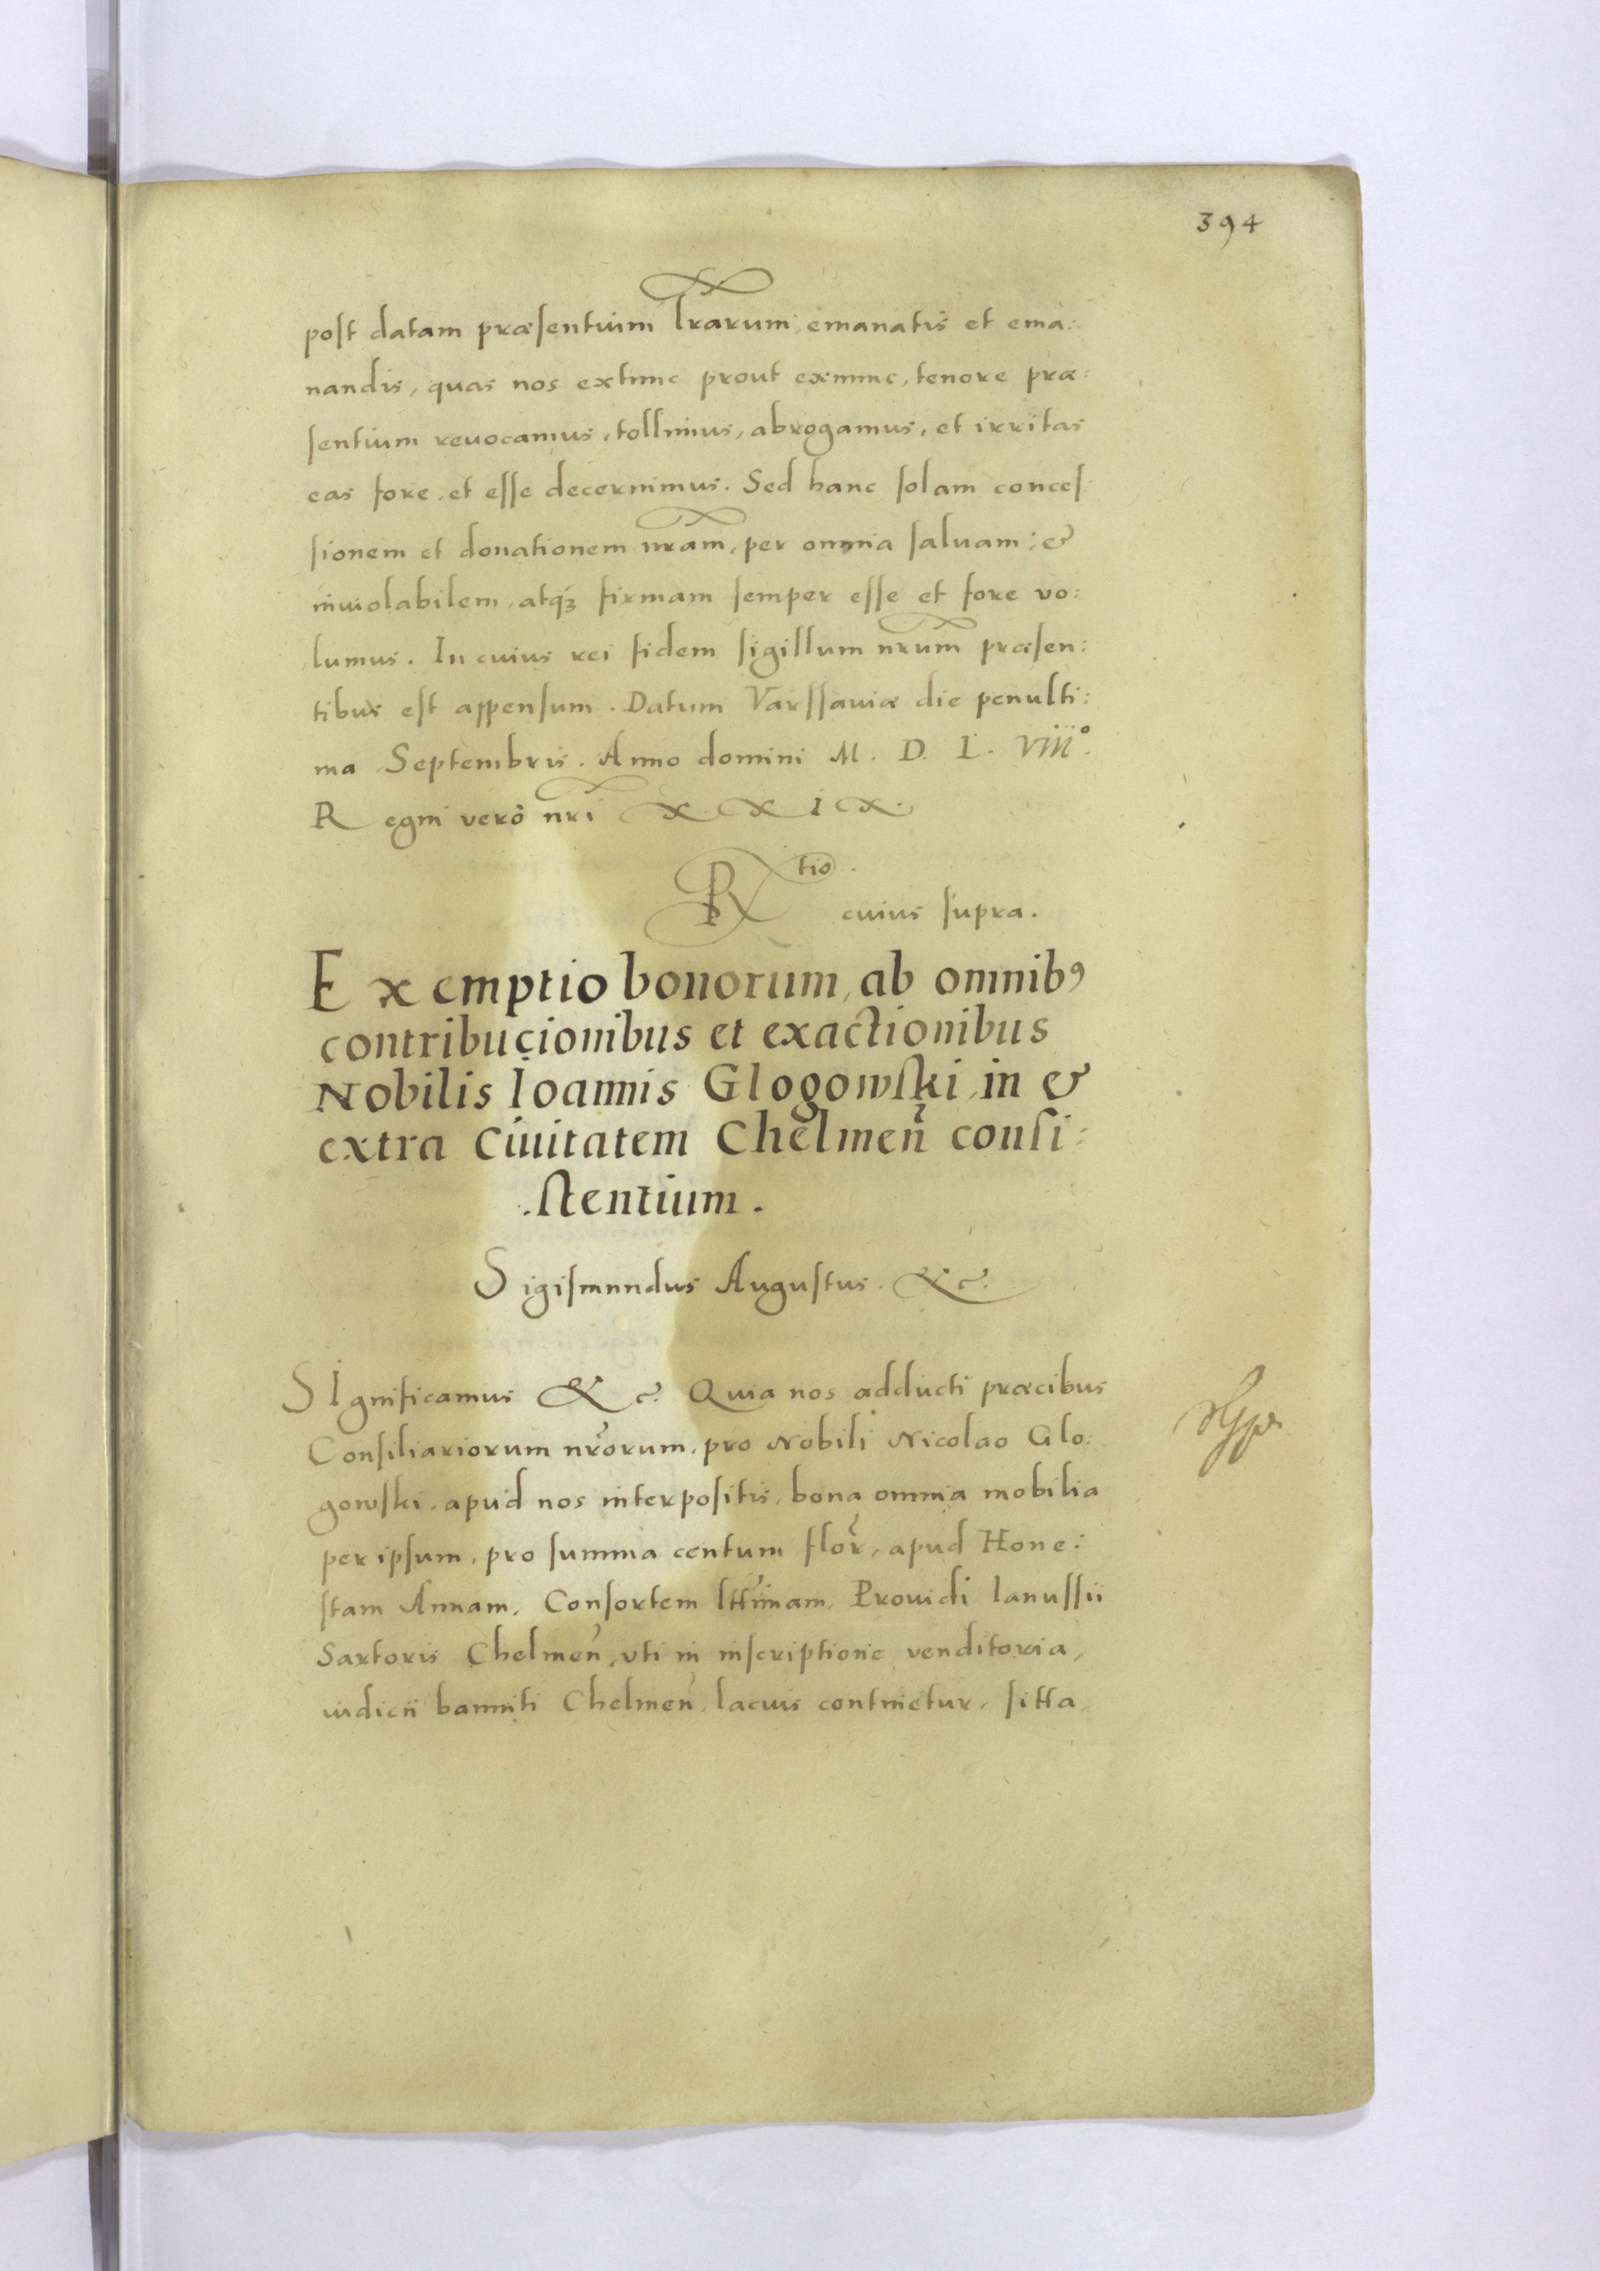 394
post datam præsentium lrarum, emanatis et ema:
nandis, quas nos extunc prout exnunc, tenore præ:
sentium reuocamus, tollimus, abrogamus, et irritas
eas fore, et esse decernimus. Sed hanc solam conces
sionem et donationem nram, per omnia saluam: &
inuiolabilem, atqȝ firmam semper esse et fore vo:
lumus. In cuius rei fidem sigillum nrum præsen:
tibus est appensum. Datum Varssauiæ die penulti:
ma Septembris. Anno domini M. D. L. VIII°.
Regni verò nri XXIX.
R tio.
cuius supra.
Exemptio bonorum, ab omnibꝰ
contribucionibus et exactionibus
Nobilis Ioannis Glogowski, in &
extra Ciuitatem Chelmen̄ consi:
stentium.
Sigismundus Augustus. &c.
SIgnificamus &c. Quia nos adducti præcibus
Consiliariorum nrorum, pro Nobili Nicolao Glo:
gowski, apud nos interpositis, bona omnia mobilia
per ipsum, pro summa centum flor, apud Hone:
stam Annam, Consortem lttimam, Prouidi Ianussii
Sartoris Chelmen̄, vti in inscriptione venditoria,
iudicii banniti Chelmen̄, lacius continetur, sitta,